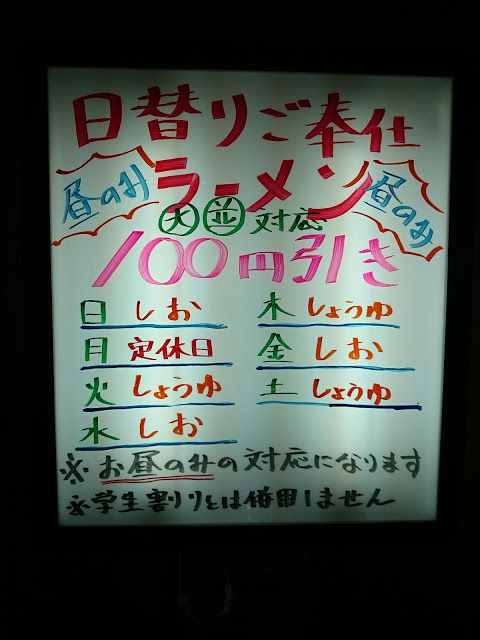 日替りご奉仕
昼のみ ラーメン 昼のみ
大 並 対応
100円引き
日 しお
月 定休日
火 しょうゆ
水 しお
木 しょうゆ
金 しお
土 しょうゆ
※お昼のみの対応になります
※学生割りとは併用しません